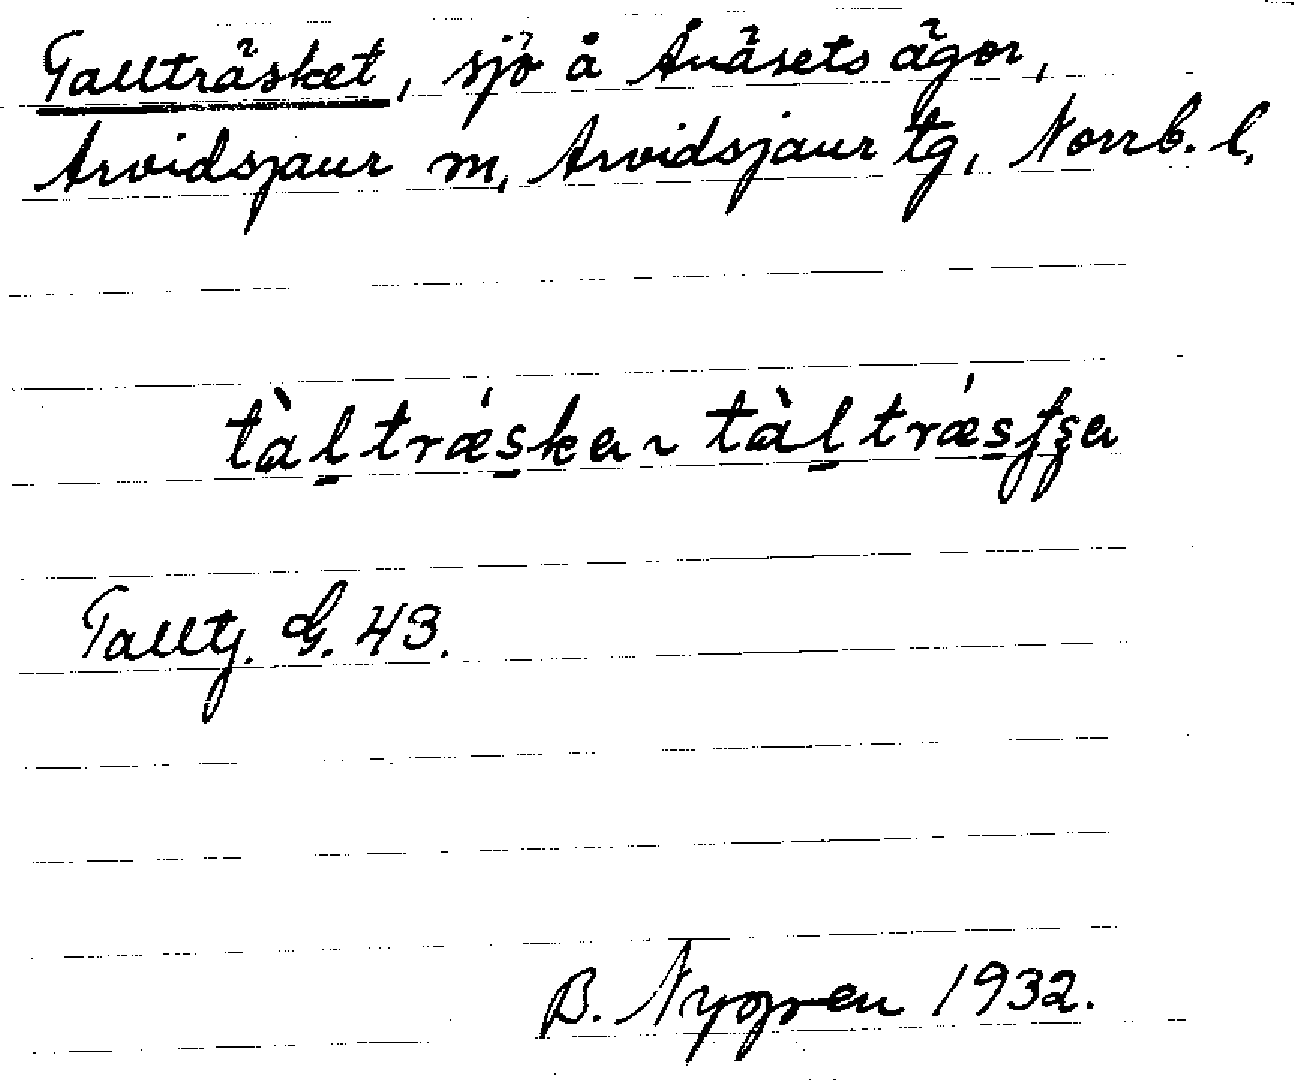 Tallträsket, sjö å Avåsets ägor,
Arvidsjaur m, Arvidsjaur tg, Norrb. l.
tàl̠ trǽs̠ka ~ tàl̠ trǽs̠
Talltj. G. 43.
B. Nygren 1932.